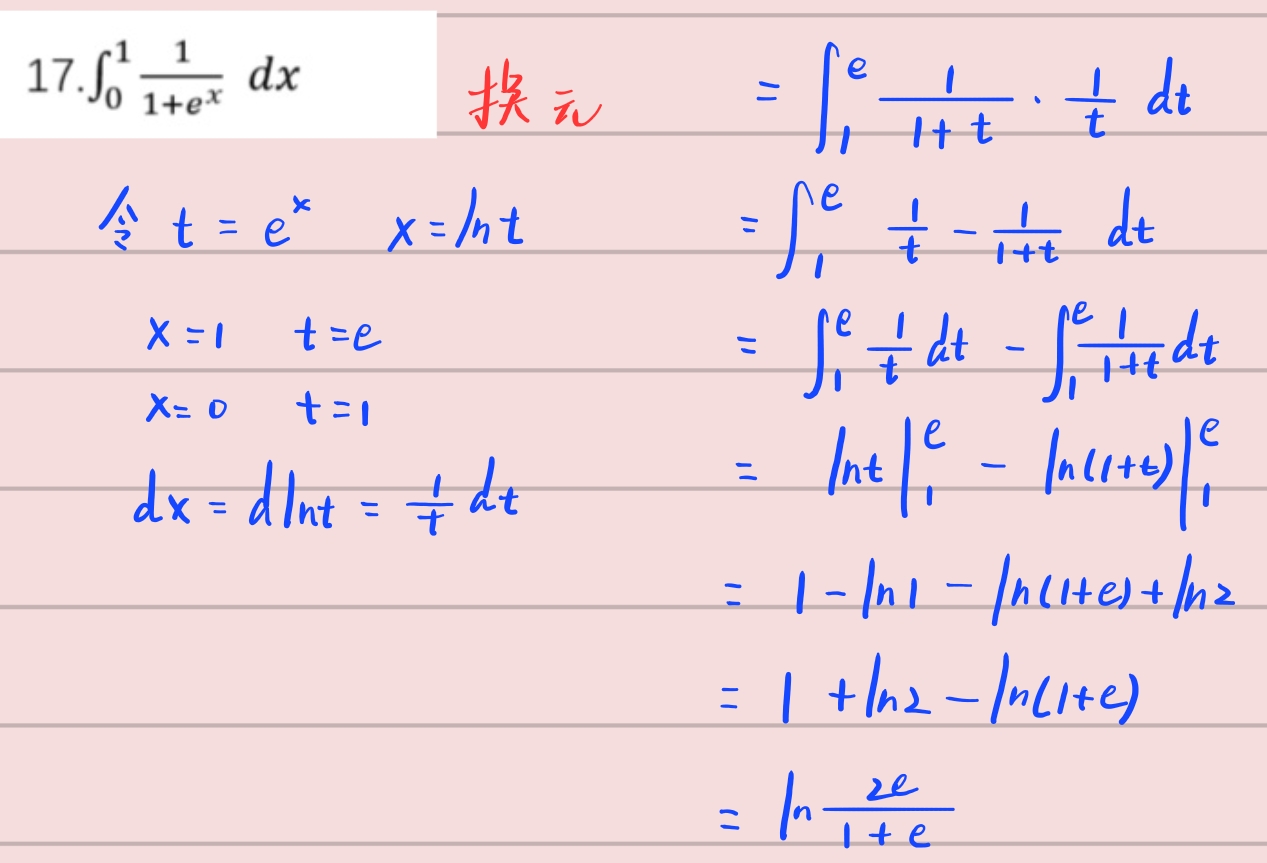 17. ∫₀¹ 1/(1+eˣ) dx
换元
令 t = eˣ x = ln t
x = 1 t = e
x = 0 t = 1
dx = d ln t = 1/t dt
= ∫₁ᵉ 1/(1+t) · 1/t dt
= ∫₁ᵉ 1/t − 1/(1+t) dt
= ∫₁ᵉ 1/t dt − ∫₁ᵉ 1/(1+t) dt
= ln t |₁ᵉ − ln(1+t) |₁ᵉ
= 1 − ln 1 − ln(1+e) + ln 2
= 1 + ln 2 − ln(1+e)
= ln 2e/(1+e)